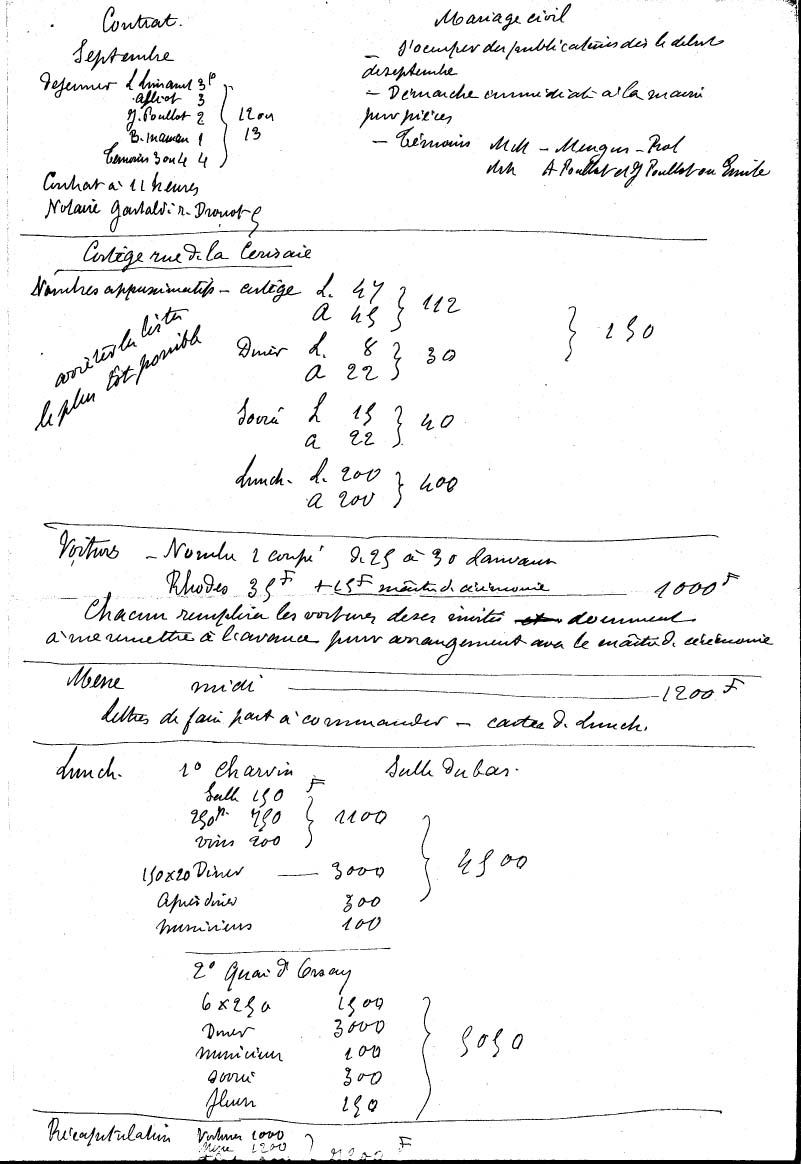 Contrat.
Septembre
Dejeuner L Limant 3p
Afliot 3
J. Poullot 2
B. maman 1
Témoins 3 ou 4 4
12 ou
13
Contrat à 11 heures
Notaire Gastaldi r. Drouot 5
Mariage civil
— S'occuper des publications dès le début
de septembre
— Démarche immédiate à la mairie
pour pièces
— Témoins Mell — Mengus — Prol
A Poullot et J Poullot ou Emile
Cortège rue de la Cerisaie
Nombres approximatifs — cortège L. 47
A 45
112
150
arrêter la liste
le plus tôt possible
Diner L. 8
A 22
30
Soirée L 15
A 22
40
Lunch. L. 200
A 200
400
Voitures — Nombre 1 coupé d. 25 à 30 Landaux
Rhodes 35F + 15F maître d cérémonie 1000F
Chacun remplira les voitures de ses invités et document
à me remettre à l'avance pour arrangement avec le maître d. cérémonie
Messe midi 1200F
Lettres de faire part à commander — cartes d. Lunch.
Lunch. 1° Charvin Salle du bas.
Salle 150 F
250p. 750
vins 200
1100
150x20 Diner 3000
Après diner 300
musiciens 100
4500
2° Quai d'Orsay
6 x 250 1500
Diner 3000
musiciens 100
soirée 300
fleurs 150
5050
Récapitulation Voitures 1000
Messe 1200